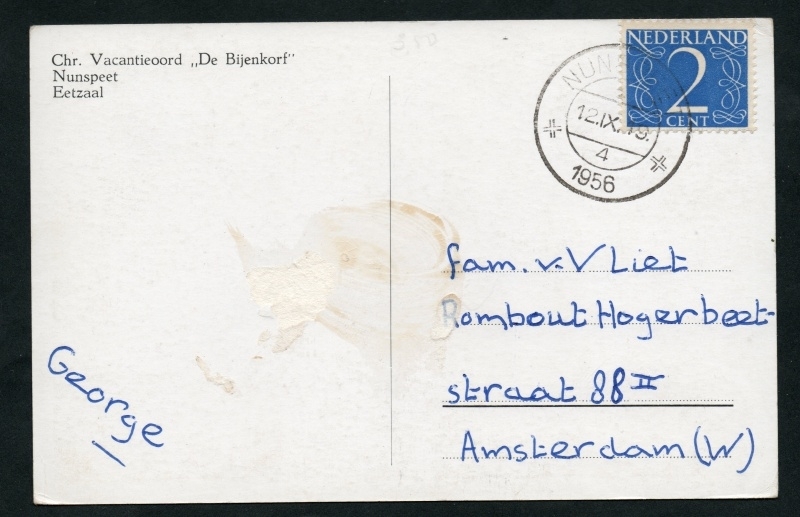 Chr. Vacantieoord „De Bijenkorf"
Nunspeet
Eetzaal
NEDERLAND
2
CENT
12.IX.
4
1956
fam. v. Vliet
Rombout Hogerbeet-
straat 88 II
Amsterdam (W)
George